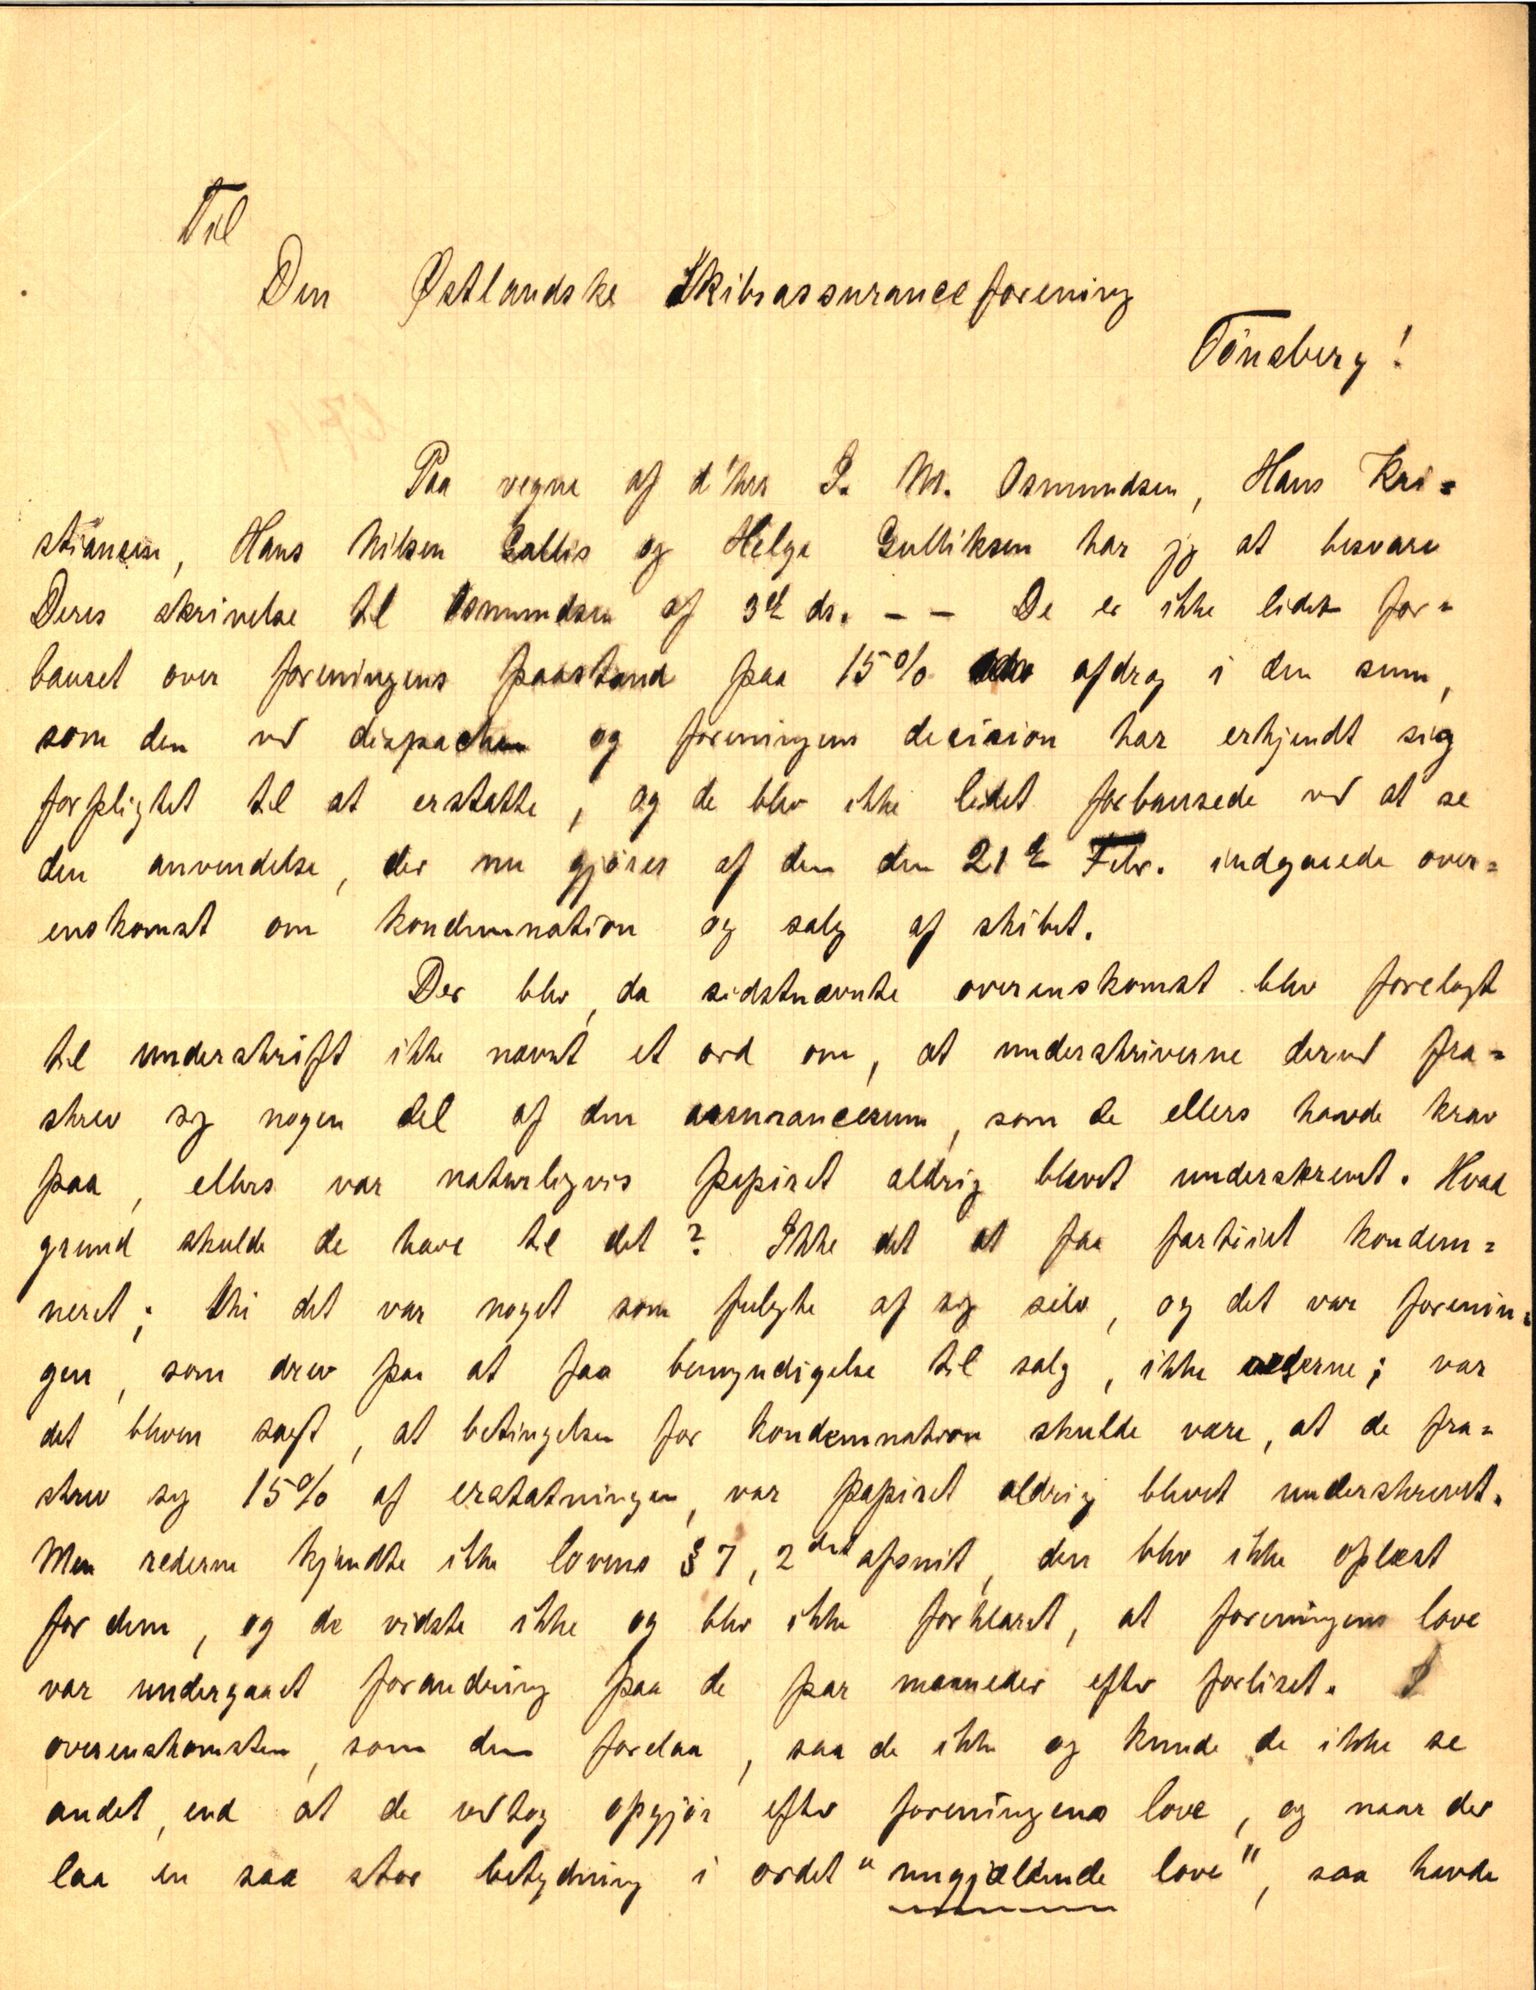 Til
Den Østlandske Skibsassuranceforening
Tönsberg!
Paa vegne af d'hrr I. M. Osmundsen, Hans Kri=
stiansen, Hans Nilsen Gallis og Helge Gulliksen har jg at besvare
Deres skrivelse til Osmundsen af 3d ds. — — De er ikke lidet for=
bauset over foreningens paastand paa 15% afdrag i den sum,
som den ved dispachen og foreningens decision har erkjendt sig
forpligtet til at erstatte, og de blev ikke lidet forbausede ved at se
den anvendelse, der nu gjöres af den den 21de Febr. indgaaede over=
enskomst om kondemnation og salg af skibet.
Der blev, da sidstnævnte overenskomst blev forelagt
til underskrift ikke nævnt et ord om, at underskriverne derved fra=
skrev sig nogen del af den assurancesum, som de ellers havde krav
paa, ellers var naturligvis papiret aldrig blevet underskrevet. Hvad
grund skulde de have til det? Ikke det at faa fartöiet kondem=
neret; thi det var noget som fulgte af sig selv, og det var forenin=
gen, som drev paa at faa bemyndigelse til salg, ikke rederne; var
det bleven sagt, at betingelsen for kondemnation skulde være, at de fra=
skrev sig 15% af erstatningen, var papiret aldrig blevet underskrevet.
Men rederne kjendte ikke lovens § 7, 2det afsnit, den blev ikke oplæst
for dem, og de vidste ikke og blev ikke forklaret, at foreningens love
var undergaaet forandring paa de par maaneder efter forliset. I
overenskomsten, som den forelaa, saa de ikke og kunde de ikke se
andet, end at de vedtog opgjör efter foreningens love, og naar der
laa en saa stor betydning i ordet "nugjældende love", saa havde